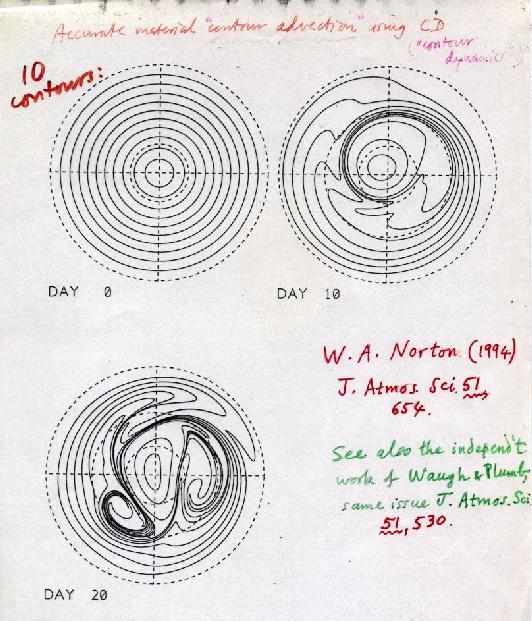 Accurate material "contour advection" using CD
("contour
dynamics")
10
contours:
DAY 0
DAY 10
W. A. Norton (1994)
J. Atmos. Sci. 51,
654.
See also the independ't
work of Waugh & Plumb,
same issue J. Atmos. Sci
51, 530.
DAY 20